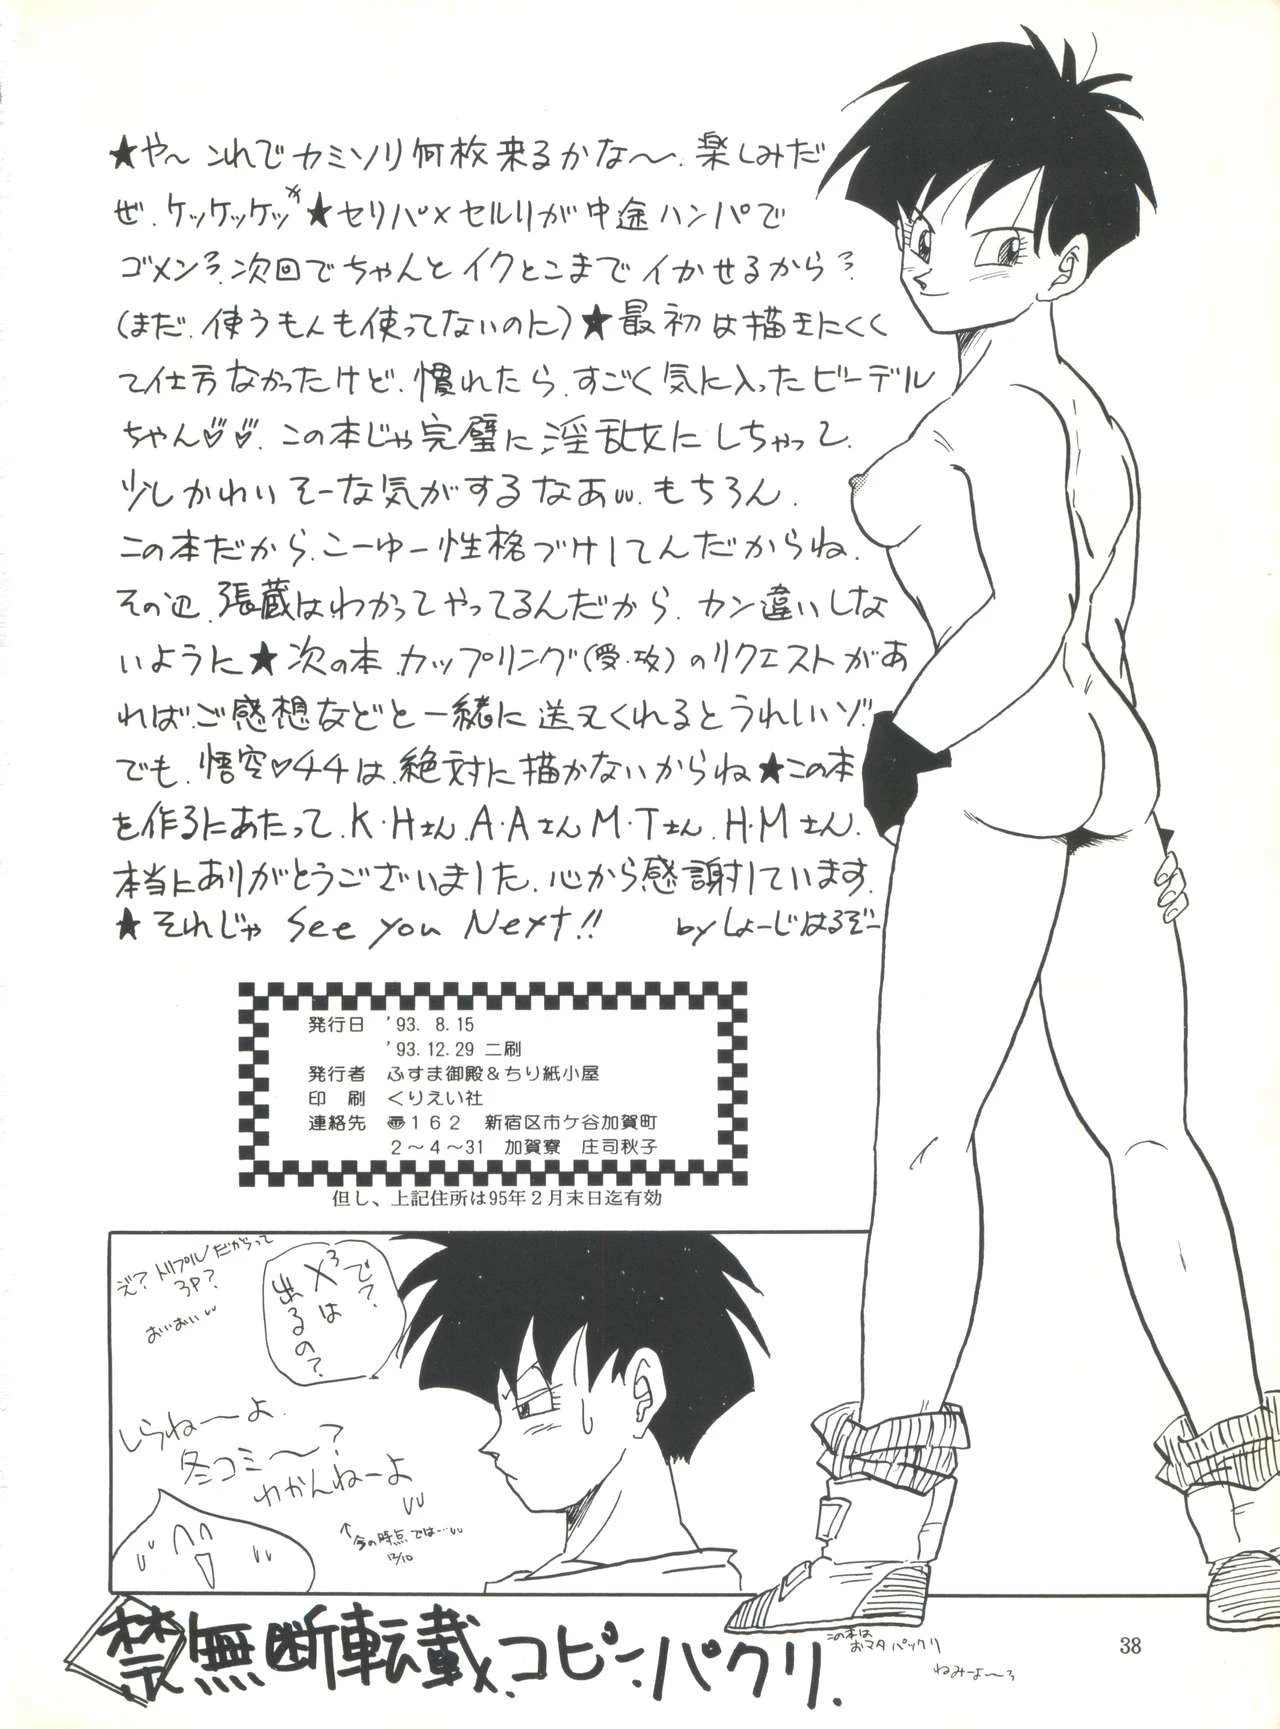 ★や〜これでカミソリ何枚来るかな〜.楽しみだ
ぜ.ケッケッケッ★セリパ×セルリが中途ハンパで
ゴメンネ.次回でちゃんとイクとこまでイかせるからネ
(まだ.使うもんも使ってないのに)★最初は描きにくく
て仕方なかったけど.慣れたら.すごく気に入ったビーデル
ちゃん♡♡.この本じゃ完璧に淫乱女にしちゃって.
少しかわいそーな気がするなあw.もちろん.
この本だから.こーゆー性格づけしてんだからね.
その辺.張蔵はわかってやってるんだから.カン違いしな
いように★次の本カップリング(受・攻)のリクエストがあ
ればご感想などと一緒に送ってくれるとうれしいゾ
でも.悟空♡チチは絶対に描かないからね★この本
を作るにあたって.K・Hさん.A・AさんM・Tさん.H・Mさん.
本当にありがとうございました.心から感謝しています.
★それじゃ See you Next!! byしょーじはるぞー
発行日 '93. 8.15
'93.12.29 二刷
発行者 ふすま御殿＆ちり紙小屋
印 刷 くりえい社
連絡先 〠１６２ 新宿区市ケ谷加賀町
２〜４〜31 加賀寮 庄司秋子
但し、上記住所は95年２月末日迄有効
で?
X³は
出るの?
え? トリプルだからって
3P?
おいおいw
しらねーよ.
冬コミ〜?
わかんねーよ
↑今の時点では…w
12/10
禁無断転載.コピー.パクリ.
この本は
おマタパックリ
ねみーよ〜
38